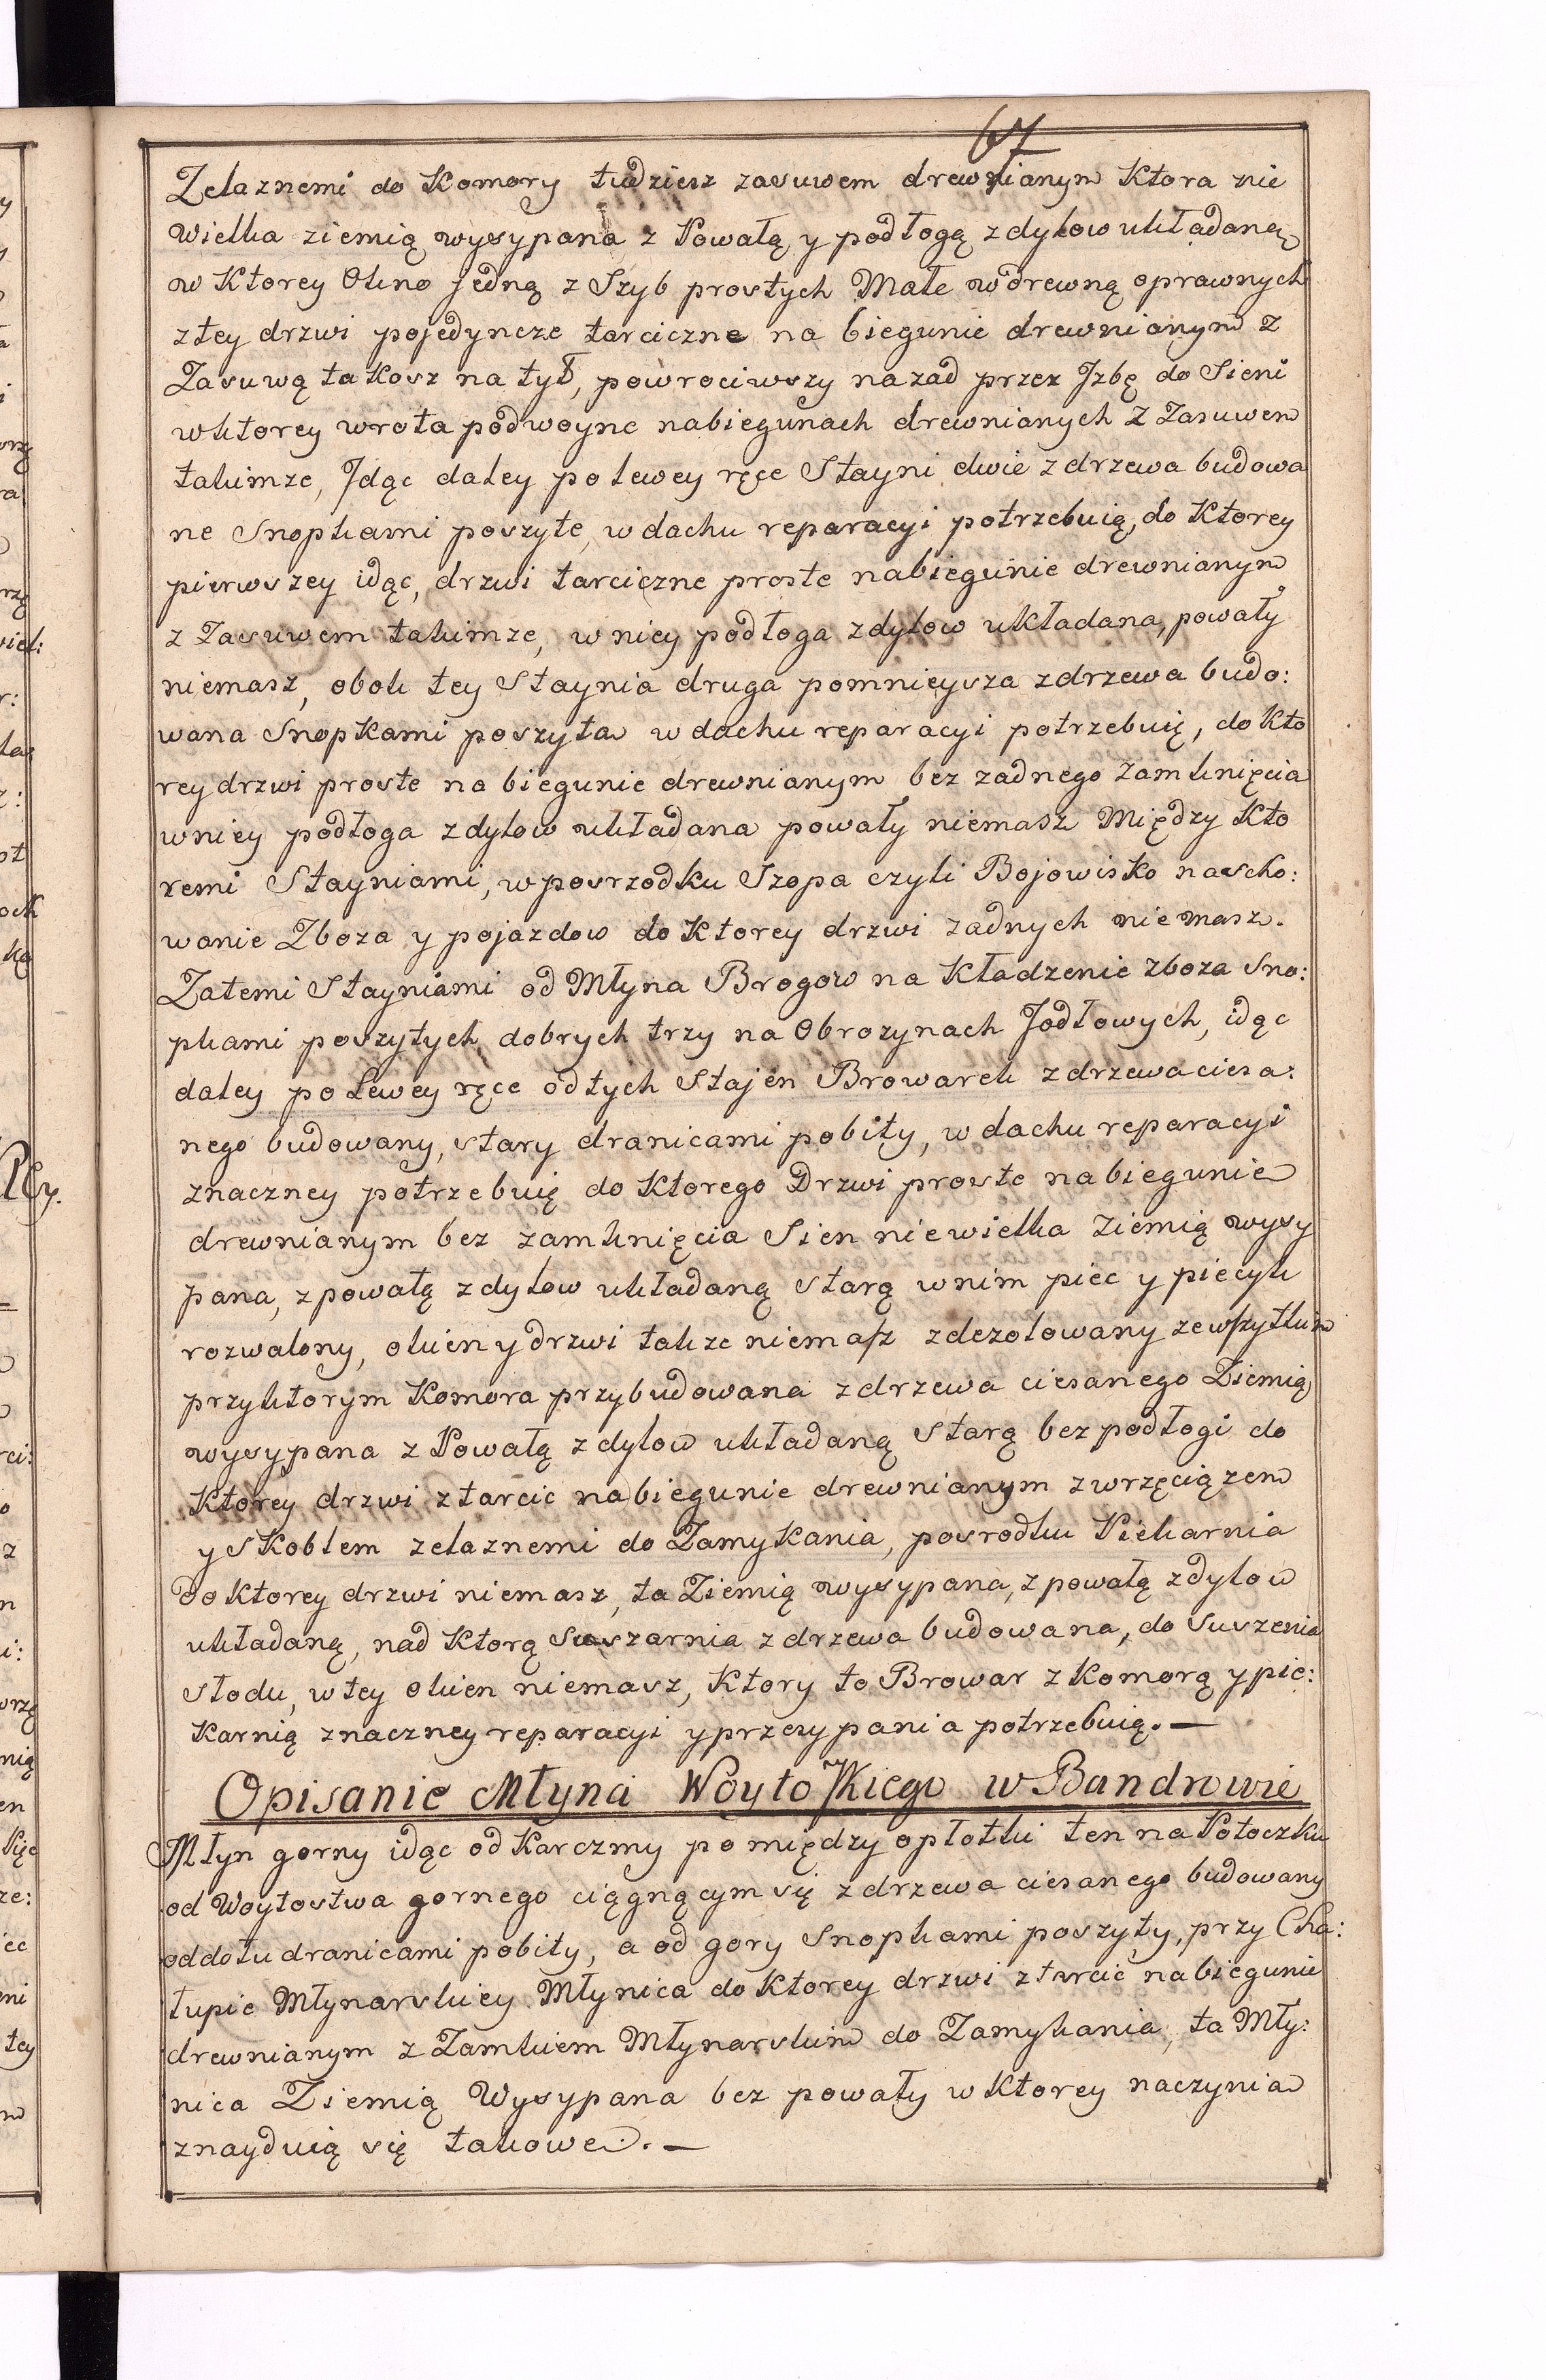 67
Zelaznemi do Komory tudziesz zasuwem drewnianym Ktora nie
wielka ziemią wysypana z Powałą y podłogą z dylow układaną
w Ktorey Okno Jedną z Szyb prostych Małe w drewną oprawnych
z tey drzwi pojedyncze tarciczne na biegunie drewnianym z
Zasuwą takosz na tył, powrociwszy nazad przez Jzbę do Sieni
wktorey wrota podwoyne nabiegunach drewnianych z Zasuwem
takimze, Jdąc daley po lewey ręce Stayni dwie z drzewa budowa
ne Snopkami poszyte, w dachu reparacyi potrzebuią, do Ktorey
pierwszey idąc, drzwi tarciczne proste nabiegunie drewnianym
z Zasuwem takimze, w niey podłoga z dylow układana, powały
niemasz, obok tey Staynia druga pomnieysza z drzewa budo:
wana Snopkami poszyta w dachu reparacyi potrzebuię, do Kto
rey drzwi proste na biegunie drewnianym bez zadnego zamknięcia
wniey podłoga z dylow układana powały niemasz Między Kto
remi Stayniami, w posrzodku Szopa czyli Bojowisko na scho:
wanie Zboza y pojazdow do Ktorey drzwi zadnych niemasz.
Zatemi Stayniami od Młyna Brogow na Kładzenie zboza Sno:
pkami poszytych dobrych trzy na Obrozynach Jodłowych, idąc
daley po Lewey ręce od tych Stajen Browarek z drzewa ciesa:
nego budowany, stary dranicami pobity, w dachu reparacyi
znaczney potrzebuię do Ktorego Drzwi proste nabiegunie
drewnianym bez zamknięcia Sien niewielka Ziemią wysy
pana, z powałą z dylow układaną starą wnim piec y piecyk
rozwalony, okien y drzwi takze niemasz zdezolowany zewszytkim
przyktorym Komora przybudowana z drzewa ciesanego Ziemią
wysypana z Powałą z dylow układaną Starą bez podłogi do
Ktorey drzwi z tarcic nabiegunie drewnianym z wrzęciązem
y Skoblem zelaznemi do Zamykania, posrodku Piekarnia
do Ktorey drzwi niemasz, ta Ziemią wysypana, z powałą z dylow
układaną, nad Ktorą Suszarnia z drzewa budowana, do Suszenia
Słodu, w tey okien niemasz, Ktory to Browar z Komorą y pie:
Karnią znaczney reparacyi y przesypania potrzebuią. —
Opisanie Młyna Woytoskiego w Bandrowie
Młyn gorny idąc od Karczmy pomiędzy opłotki ten na Potoczku
od Woytostwa gornego ciągnącym się z drzewa ciesanego budowany
oddołu dranicami pobity, a od gory Snopkami poszyty, przy Cha:
łupie Młynarskiey Młynica do Ktorey drzwi z tarcic nabiegunie
drewnianym z Zamkiem Młynarskim do Zamykania, ta Mły:
nica Ziemią Wysypana bez powały w Ktorey naczynia
znayduią się takowe. —